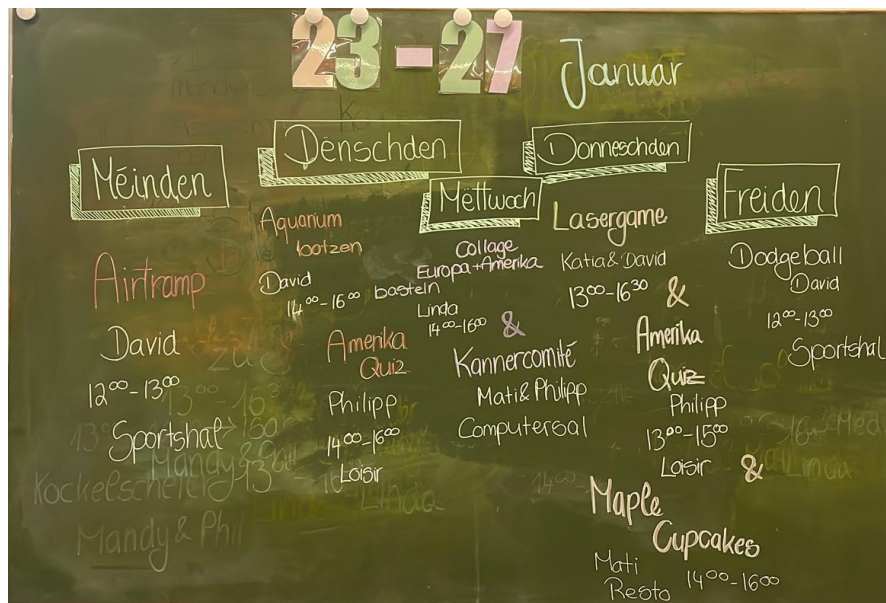 23 - 27 Januar
Méinden
Airtramp
David
12⁰⁰-13⁰⁰
Sportshal
Dënschden
Aquarium
botzen
David
14⁰⁰-16⁰⁰
Amerika
Quiz
Philipp
14⁰⁰-16⁰⁰
Loisir
Mëttwoch
Collage
Europa+Amerika
basteln
Linda
14⁰⁰-16⁰⁰
&
Kannercomité
Mati & Philipp
Computersal
Donneschden
Lasergame
Katia & David
13⁰⁰-16³⁰
&
Amerika
Quiz
Philipp
13⁰⁰-15⁰⁰
Loisir
&
Maple
Cupcakes
Mati
Resto 14⁰⁰-16⁰⁰
Freiden
Dodgeball
David
12⁰⁰-13⁰⁰
Sportshal
Kockelscheier
Mandy & Phil
Linda